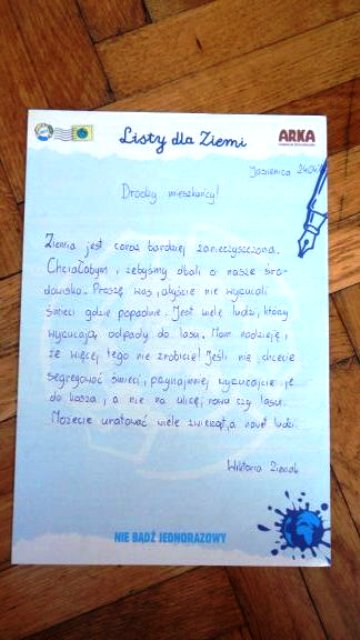 Listy dla Ziemi
ARKA
Jasienica 24.04
Drodzy mieszkańcy!
Ziemia jest coraz bardziej zanieczyszczona.
Chciałabym, żebyśmy dbali o nasze śro-
dowisko. Proszę was, abyście nie wyrzucali
śmieci gdzie popadnie. Jest wiele ludzi, którzy
wyrzucają odpady do lasu. Mam nadzieję,
że więcej tego nie zrobicie! Jeśli nie chcecie
segregować śmieci, przynajmniej wyrzucajcie je
do kosza, a nie na ulicę, rowa czy lasu.
Możecie uratować wiele zwierząt, a nawet ludzi.
Wiktoria
NIE BĄDŹ JEDNORAZOWY